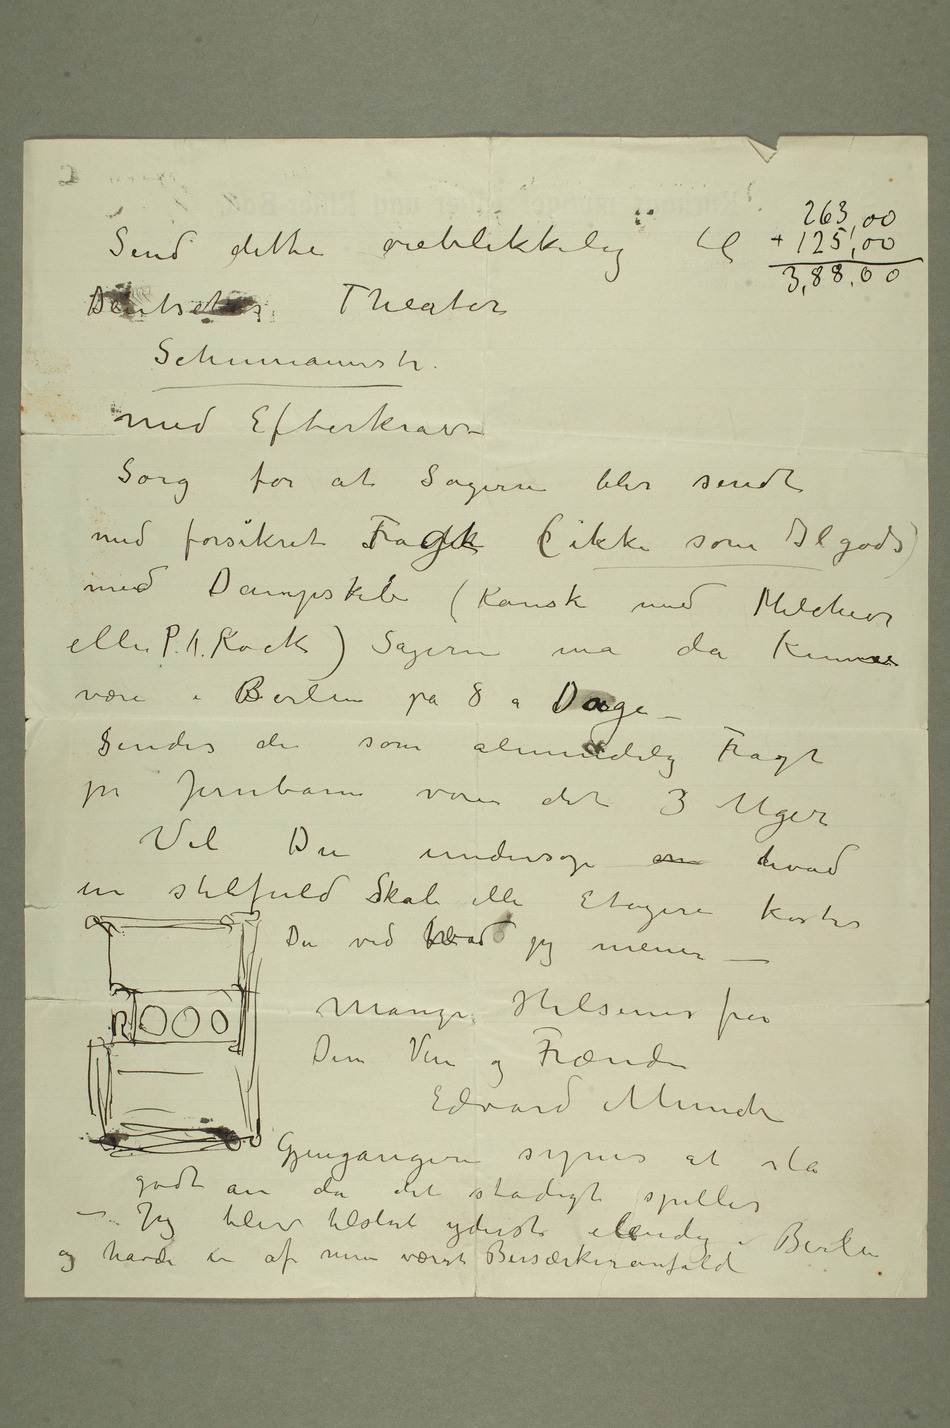 263,00
+ 125,00
3,88,00
Send dette øieblikkelig til
Deutsches Theater
Schumannstr.
med Efterkrav –
Sørg for at Sagerne blir sendt
med forsikret Fragt (ikke som Ilgods)
med Dampskib (kanske med Melchior
eller P. A. Rock) Sagerne må da kunne
være i Berlin på 8 a Dage –
Sendes de som almindelig Fragt
pr Jernbane varer det 3 Uger
Vil Du undersøge om hvad
en stilfuld Skab eller Etagere koster
Du ved hvad jeg mener –
Mange Hilsener fra
Din Ven og Frænde
Edvard Munch
Gjengangere synes at slå
godt an da det stadigt spilles
– Jeg blev tilslut yderst elendig i Berlin
og havde en af mine værste Bersærkeranfald